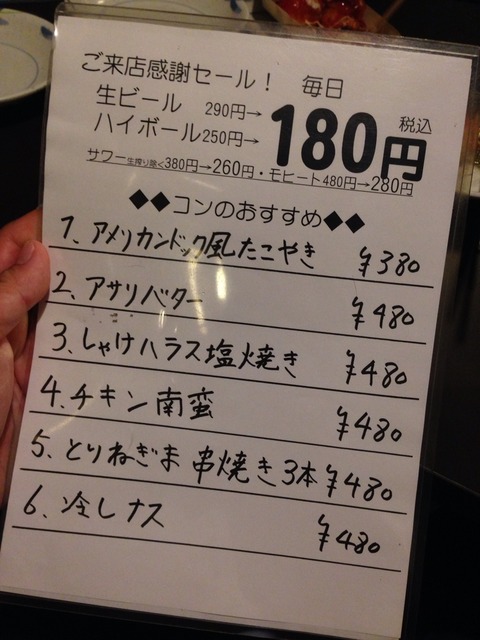 ご来店感謝セール! 毎日
生ビール 290円→
ハイボール250円→ 180円 税込
サワー生搾り除く380円→260円・モヒート480円→280円
◆◆コンのおすすめ◆◆
1. アメリカンドック風たこやき ¥380
2. アサリバター ¥480
3. しゃけハラス塩焼き ¥480
4. チキン南蛮 ¥480
5. とりねぎま 串焼き3本 ¥480
6. 冷しナス ¥480